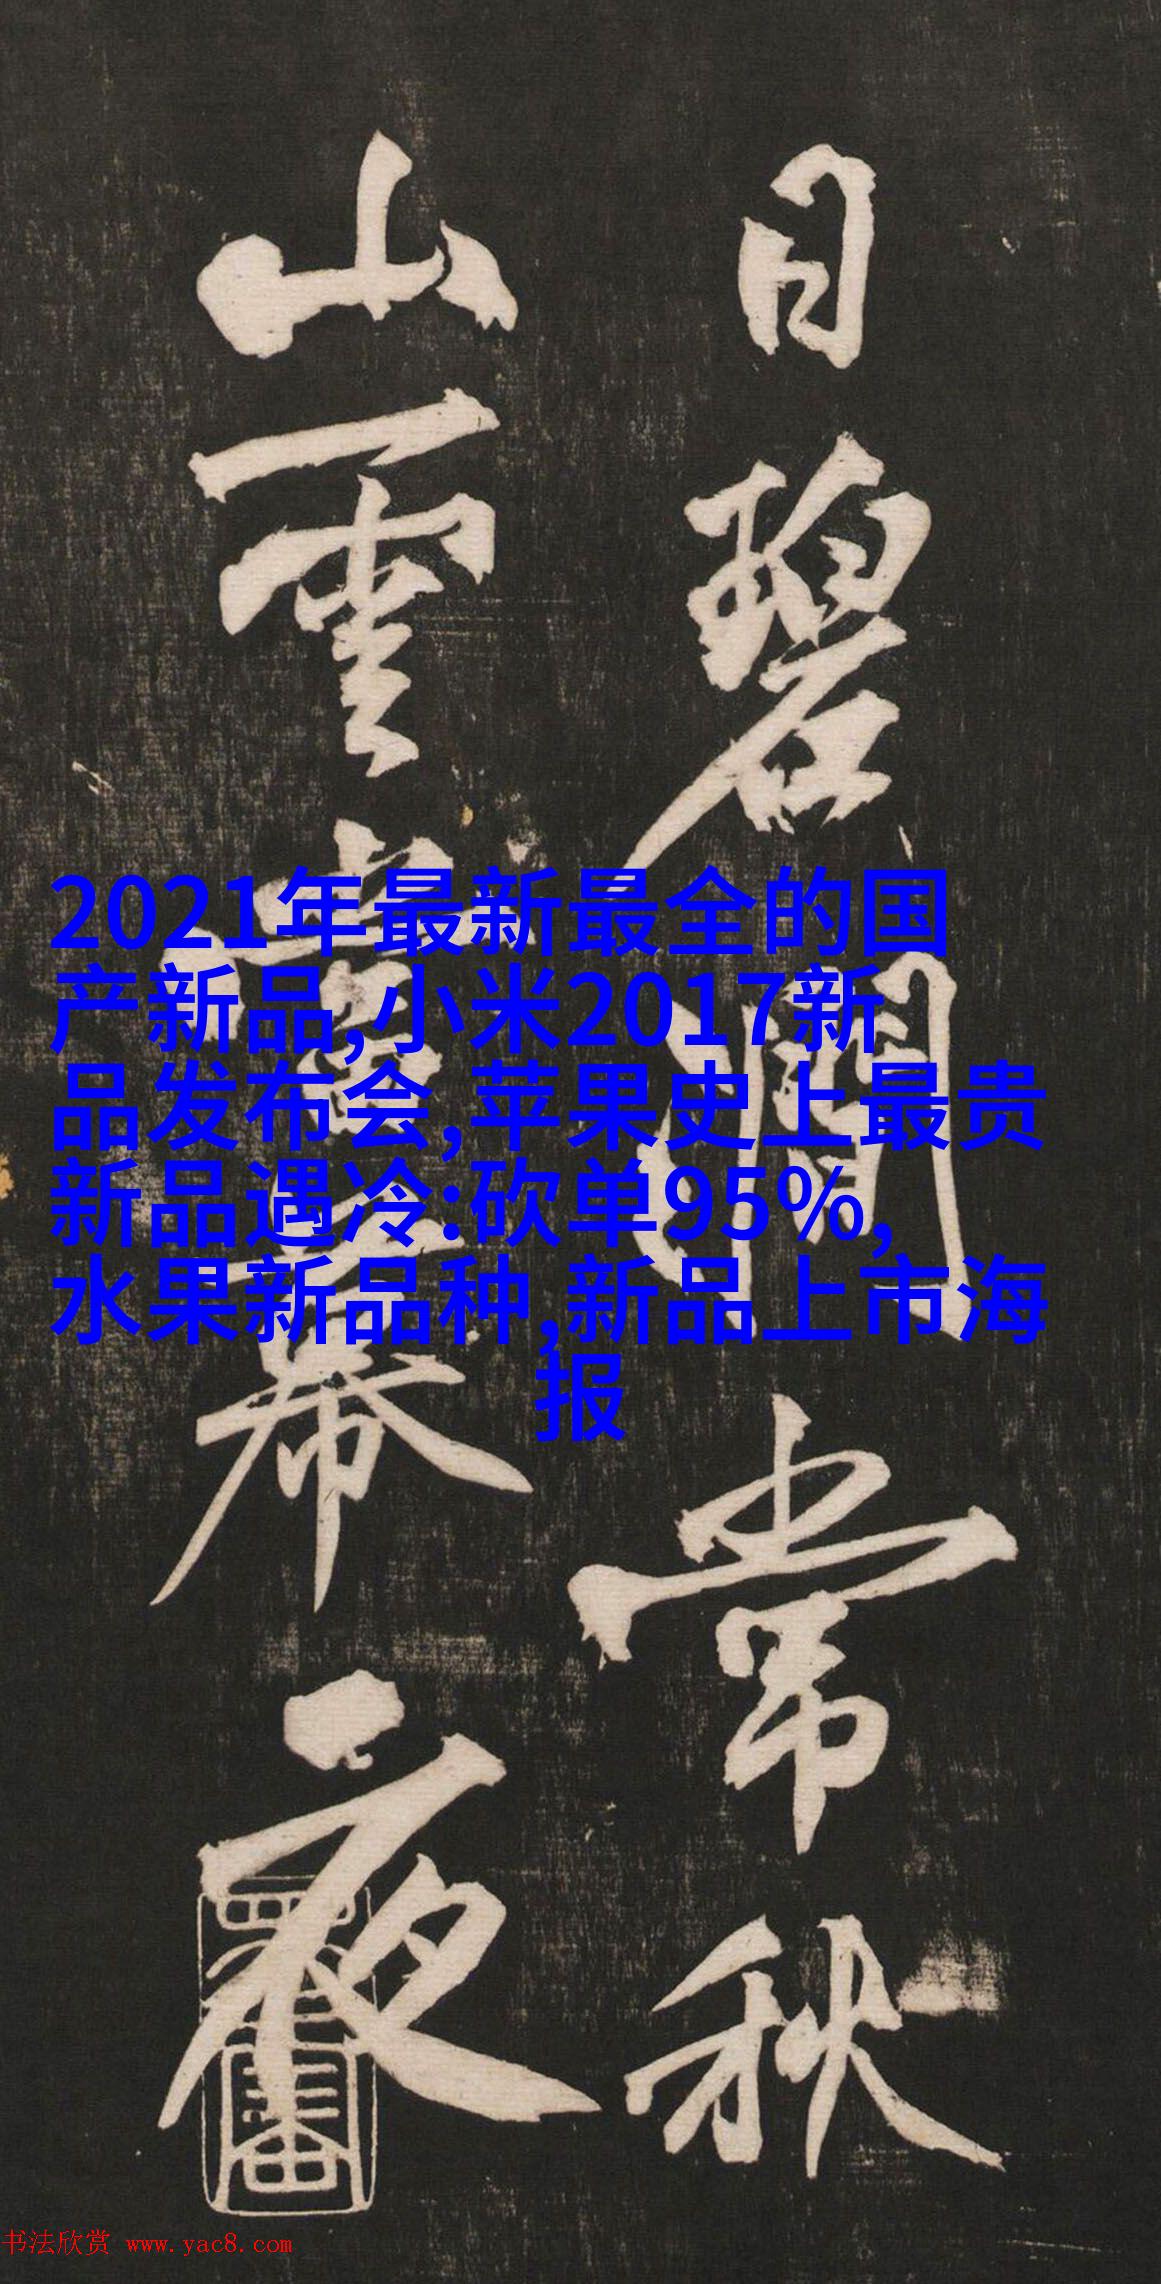 日碧澗常秋
山雲當幕夜
2021年最新最全的国
产新品,小米2017新
品发布会,苹果史上最贵
新品遇冷:砍单95%,
水果新品种,新品上市海
报
书法欣赏 www.yac8.com